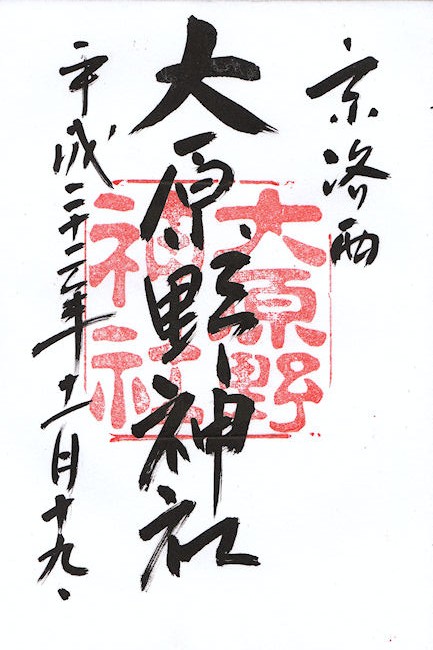 京洛西
大原野神社
平成二十二年十一月十九、
大原野
神社